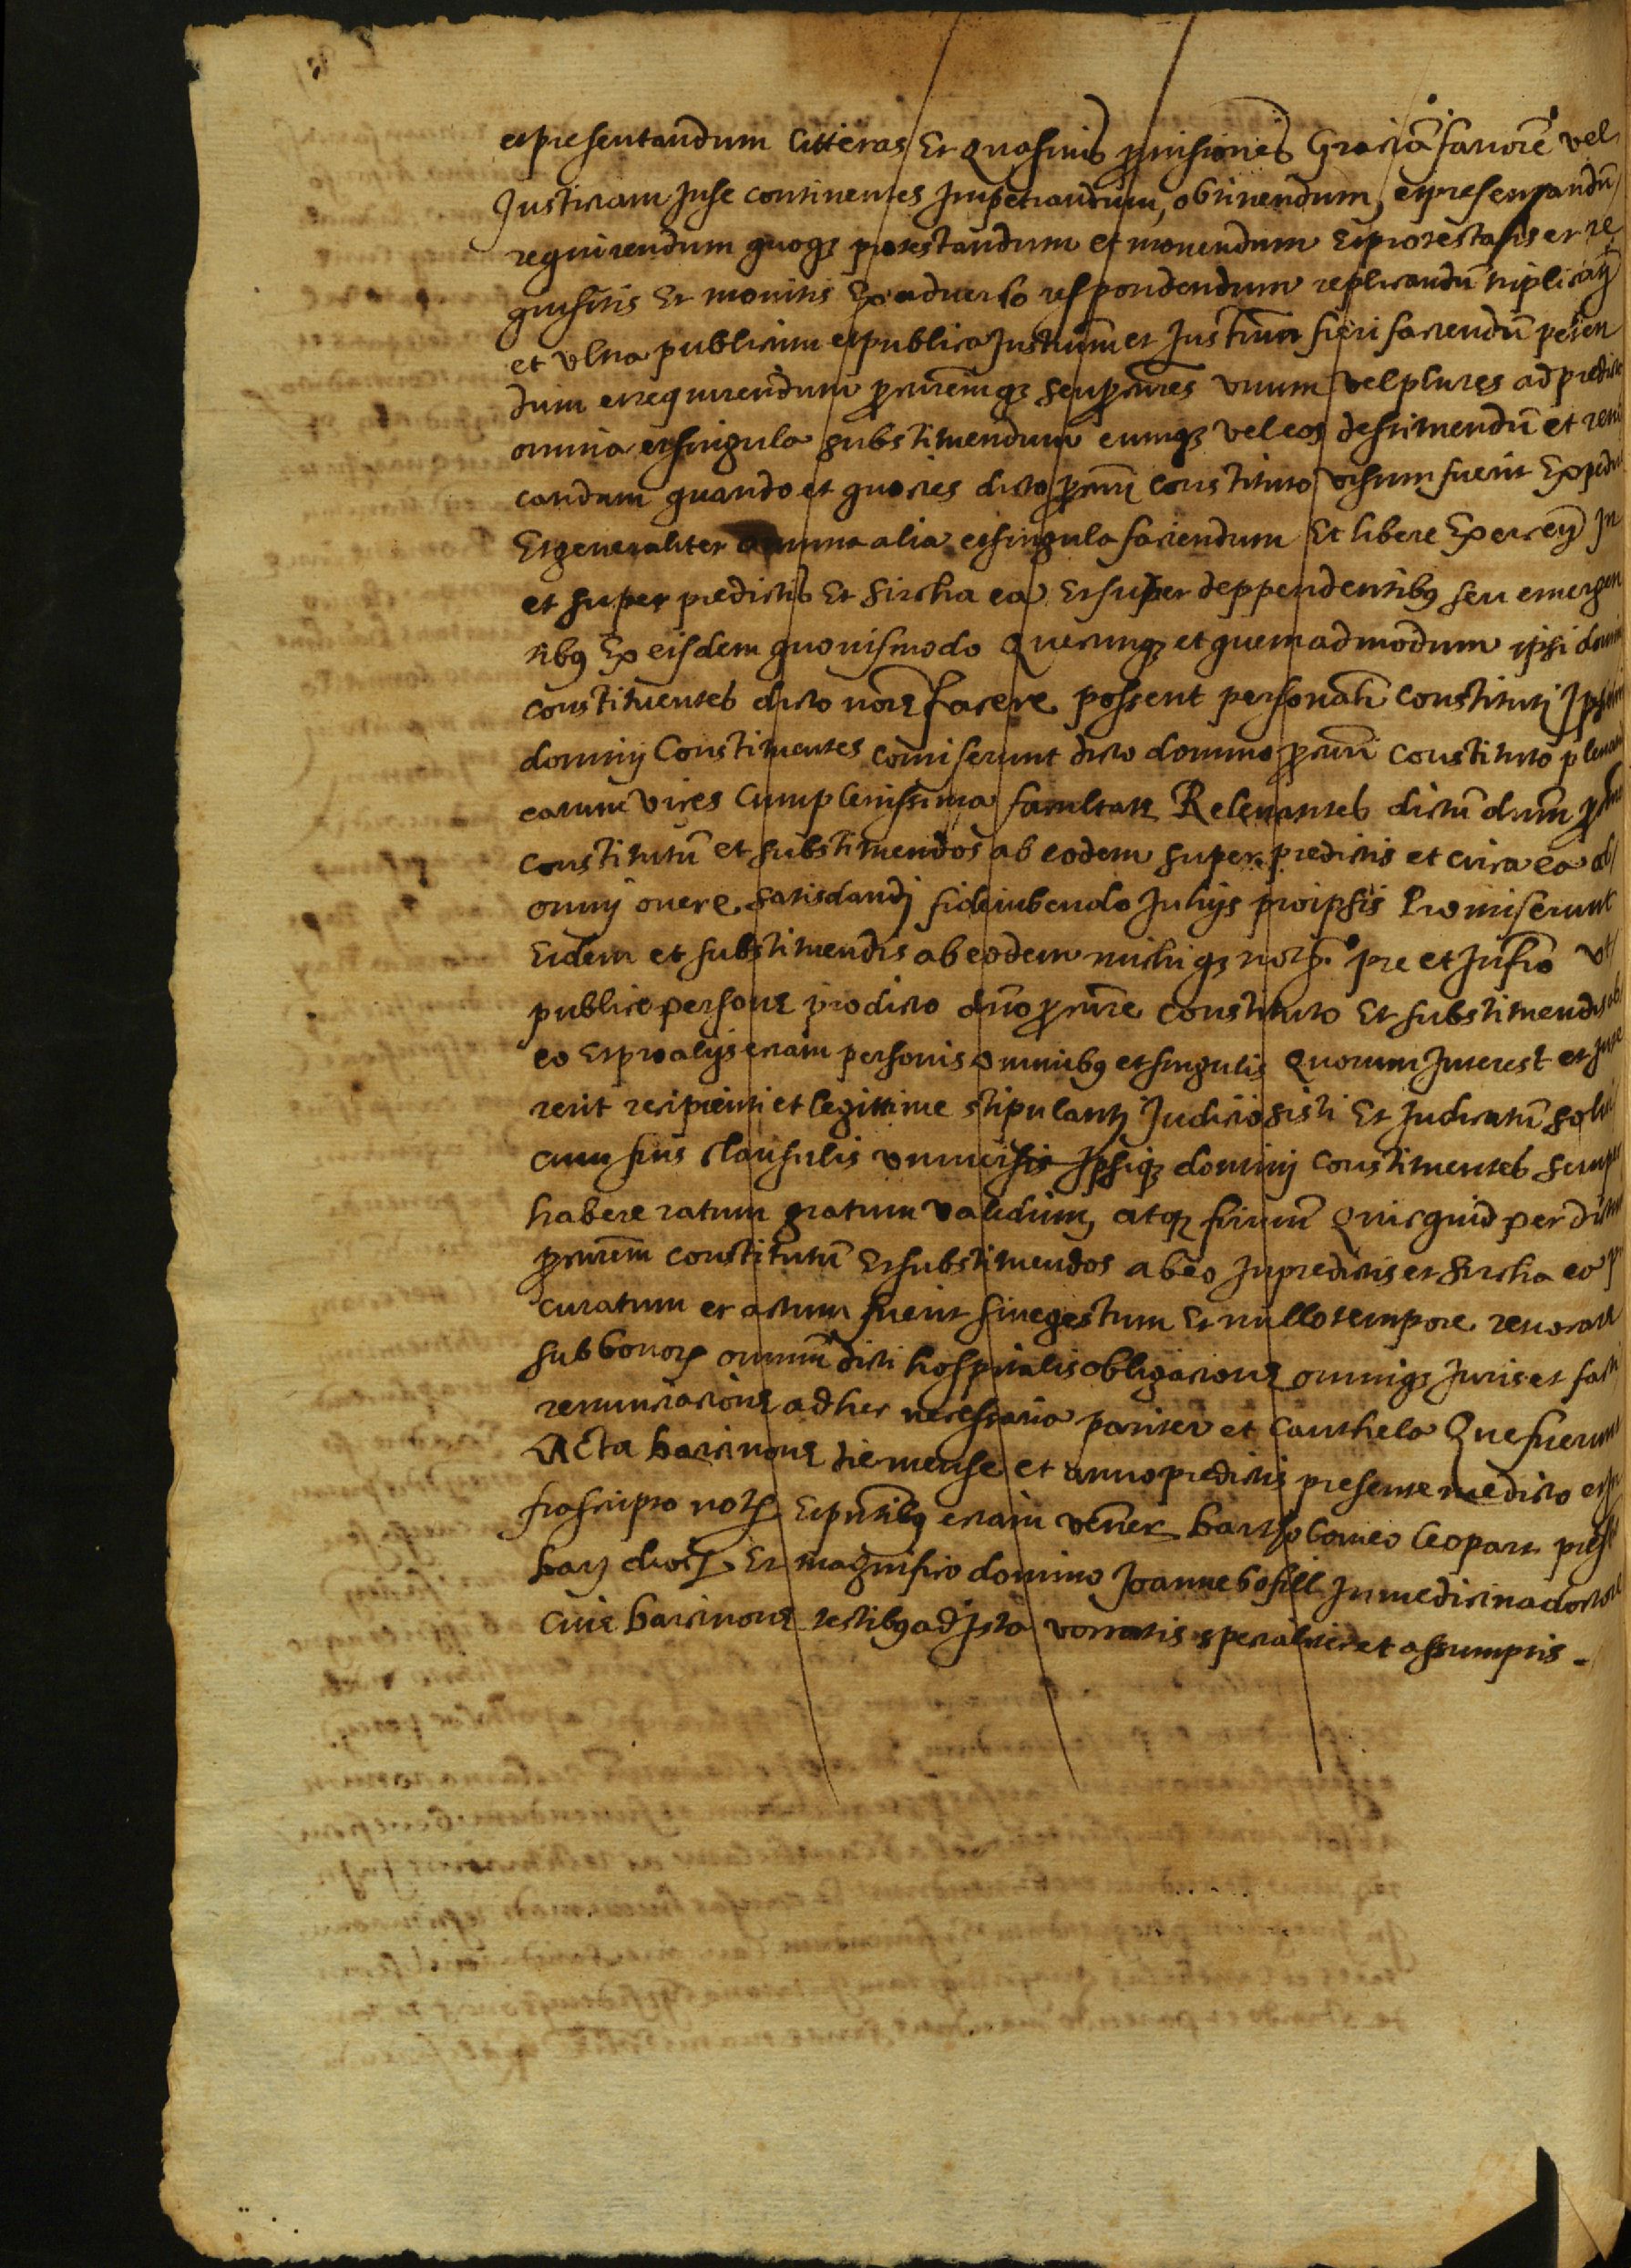 et presentandum litteras Et Quasuis prouisiones Graciã fauorẽ vel
Justiciam Inse continentes Impetrandum, obtinendum, et presentandũ
requirendum quoqz protestandum et monendum Et protestatis et re
quisitis Et monitis Ex aduerso respondendum replicandũ triplicañ
et vltra publicum et publica Instrum̃ et Instrum̃ fieri faciendũ peten
dum et requirendum procuremqz seu procures vnum vel plures ad predicta
omnia et singula substituendum eumqz vel eos destituendũ et reuo
candum quando et quocies dicto procuri constituto visum fuerit Expediri
Et generaliter omnia alia et singula faciendum Et libere Exerceñ In
et super predictis Et circha ea Et super deppendentibus seu emergen
tibus Ex eisdem quouismodo Quecunqz et quemadmodum ipsi domini
constituentes dicto noĩe facere possent personalr̃ constituti Ipsi
dominj Constituentes comiserunt dicto domino procuri constituto plenarie
earum vices Cum plenissima facultate Releuantes dictũ dnũm procurem
constitutũ et substituendos ab eodem super predictis et circa ea ab
omnj onere satisdandj fideiubendo In hijs pro ipsis Promiserunt
Eidem et substituendis ab eodem michiqz not. pre et Infro vt
publice persone pro dicto dño procure constituto Et substituendis ab
eo Et pro alijs eciam personis omnibus et singulis Quorum Interest et Inte
rerit recipienti et legittime stipulantj Judicio sisti Et Judicatũ solui
cum suis clausulis vniuersis Ipsiqz dominj constituentes semper
habere ratum gratum validum, atqz firmũ Quicquid per dictum
procurem constitutũ Et substituendos ab eo In predictis et circha ea pro
curatum et actum fuerit siue gestum Et nullo tempore reuocare
sub bonorũ omniũ dicti hospitalis obligacione omniqz Juris et facti
renunciacione ad hec necessaria pariter et cauthela Que fuerunt
Acta barcinone die mense et anno predictis presente me dicto et In
frascripto not. Et pñtibus eciam vener. bartholomeo leopart presb
diocs. Et magnifico domino Joanne bofill In medicina doctore
ciue barcinone testibus ad Ista vocatis specialiter et assumptis.